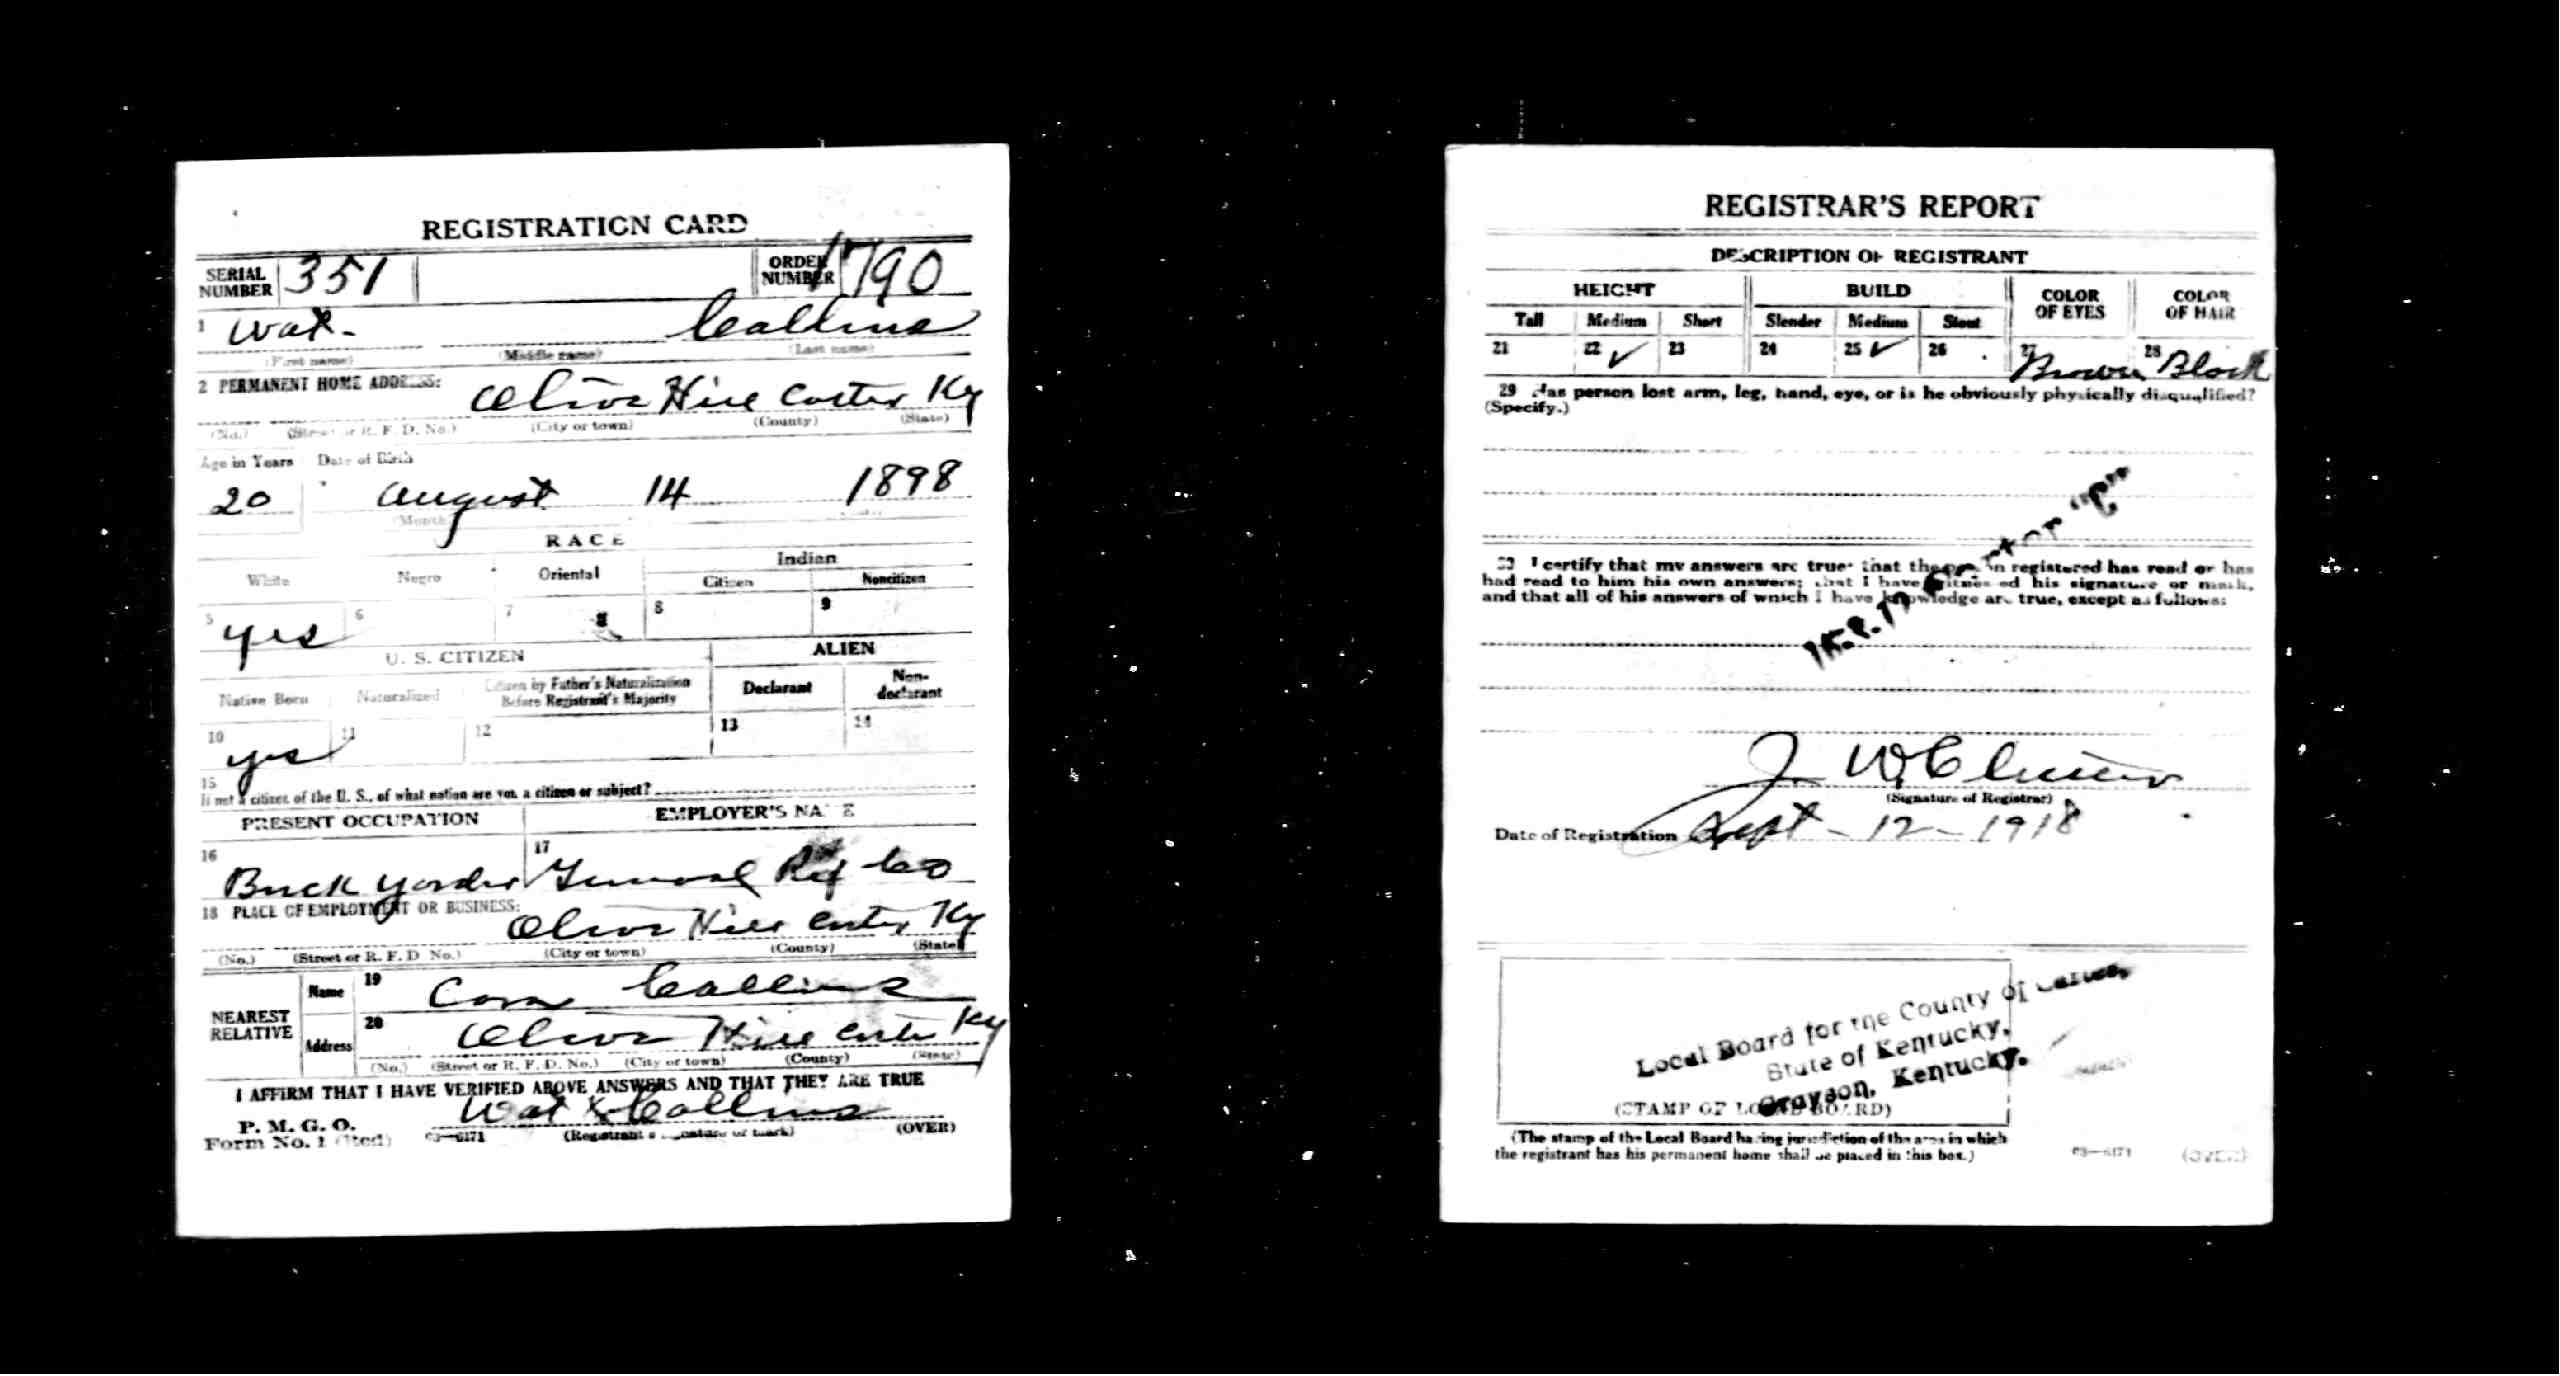 REGISTRATION CARD
SERIAL NUMBER 351 ORDER NUMBER 1790
1 Wat - Collins
(First name) (Middle name) (Last name)
2 PERMANENT HOME ADDRESS:
Olive Hill Carter Ky
(No.) (Street or R. F. D. No.) (City or town) (County) (State)
Age in Years Date of Birth
20 August 14 1898
(Month)
RACE
White Negro Oriental Indian
Citizen Noncitizen
5 yes 6 7 8 9
U. S. CITIZEN ALIEN
Native Born Naturalized Citizen by Father's Naturalization Before Registrant's Majority Declarant Non-declarant
10 yes 11 12 13 14
15
If not a citizen of the U. S., of what nation are you a citizen or subject?
PRESENT OCCUPATION EMPLOYER'S NAME
16 17
General Ref Co
18 PLACE OF EMPLOYMENT OR BUSINESS:
Olive Hill Carter Ky
(No.) (Street or R. F. D. No.) (City or town) (County) (State)
NEAREST RELATIVE
Name 19 Cora Collins
Address 20 Olive Hill Carter Ky
(No.) (Street or R. F. D. No.) (City or town) (County) (State)
I AFFIRM THAT I HAVE VERIFIED ABOVE ANSWERS AND THAT THEY ARE TRUE
P. M. G. O.
Form No. 1 (Red) 03—6171
Wat X Collins
(Registrant's signature or mark) (OVER)
REGISTRAR'S REPORT
DESCRIPTION OF REGISTRANT
HEIGHT BUILD COLOR OF EYES COLOR OF HAIR
Tall Medium Short Slender Medium Stout
21 22 ✓ 23 24 25 ✓ 26 27 Brown 28 Black
29 Has person lost arm, leg, hand, eye, or is he obviously physically disqualified?
(Specify.)
30 I certify that my answers are true; that the person registered has read or has
had read to him his own answers; that I have witnessed his signature or mark,
and that all of his answers of which I have knowledge are true, except as follows:
"C"
J. W.
(Signature of Registrar)
Date of Registration Sept - 12 - 1918
Local Board for the County of Carter,
State of Kentucky,
Grayson, Kentucky.
(STAMP OF LOCAL BOARD)
(The stamp of the Local Board having jurisdiction of the area in which
the registrant has his permanent home shall be placed in this box.)
03—6171 (OVER)